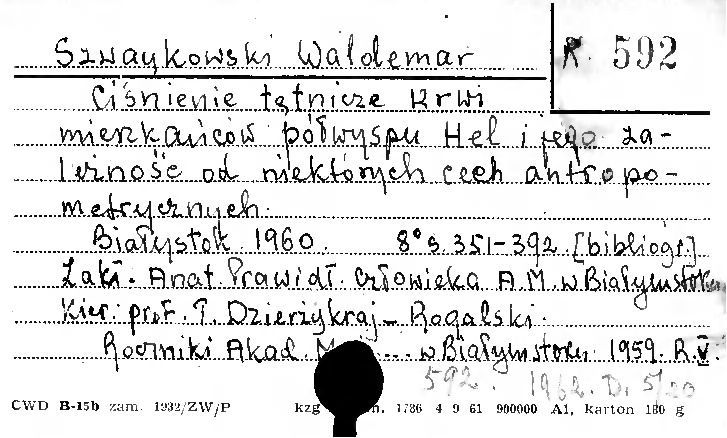 Szwaykowski Waldemar
R. 592
Ciśnienie tętnicze krwi
mieszkańców półwyspu Hel i jego za-
leżność od niektórych cech antropo-
metrycznych.
Białystok 1960. 8° s. 351-392 [bibliogr.]
Zakł. Anat. Prawidł. Człowieka A.M. w Białymstoku
Kier: prof. T. Dzierżykraj-Rogalski.
Roczniki Akad. M... w Białymstoku 1959. R.V.
592. 1962. D. 5/20
CWD B-15b zam. 1932/ZW/P kzg n. 1786 4 9 61 900000 A1, karton 180 g